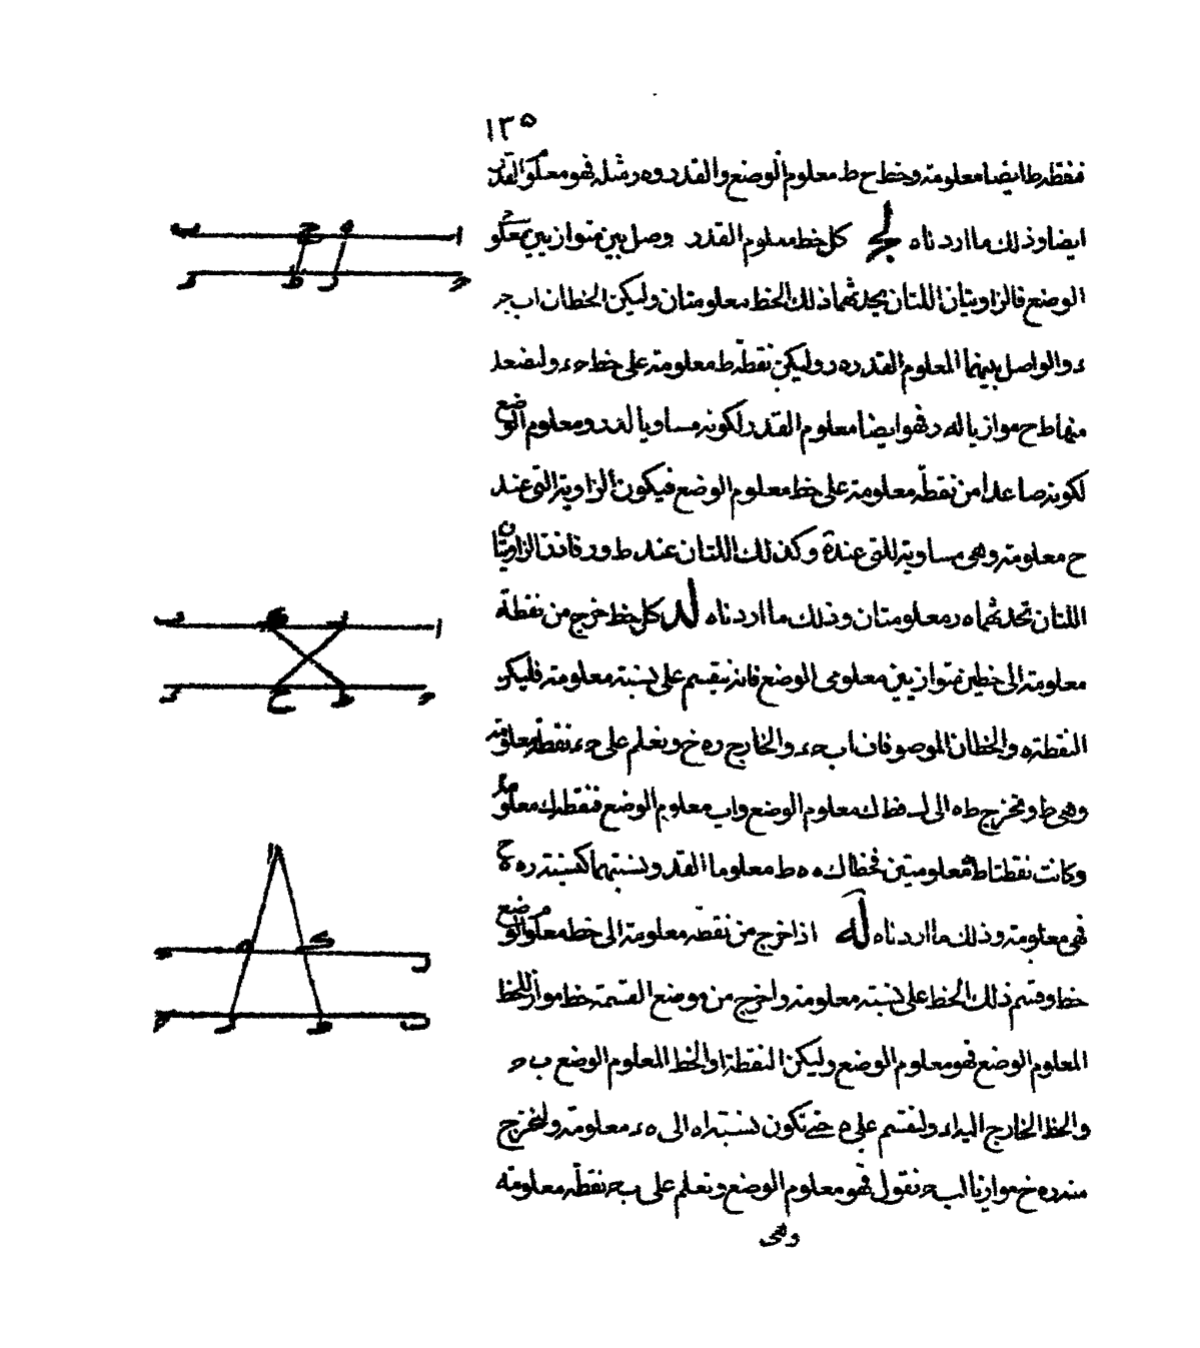 ١٣٥
فنقطة ط ايضا معلومة وخط ح ط معلوم الوضع والقدر و ه ر مثله فهو معلوم القدر
ايضا وذلك ما اردناه لج كل خط معلوم القدر وصل بين متوازيين معلومى
الوضع فالزاويتان اللتان يحدثهما ذلك الخط معلومتان وليكن الخطان اب ج
ء والواصل بينهما المعلوم القدر ه ر وليكن نقطة ط معلومة على خط ج ء وليصعد
منها ط ح موازيا له ر فهو ايضا معلوم القدر لكونه مساويا له ر ومعلوم الوضع
لكونه صاعدا من نقطة معلومة على خط معلوم الوضع فيكون الزاوية التى عند
ح معلومة وهى مساوية للتى عند ه وكذلك اللتان عند ط و ر فاذن الزاويتان
اللتان تحدثهما ه ر معلومتان وذلك ما اردناه لد كل خط خرج من نقطة
معلومة الى خطين متوازيين معلومى الوضع فانه ينقسم على نسبة معلومة فليكن
النقطة ه والخطان الموصوفان اب ج ء والخارج ر ه ح ونعلم على ج ء نقطة معلومة
وهى ط ونخرج ط ه الى ك فط ك معلوم الوضع واب معلوم الوضع فنقطة ك معلومة
وكانت نقطتا ط ه معلومتين فخطا ك ه ه ط معلوما القدر ونسبتهما كنسبة ر ه ه ح
فهى معلومة وذلك ما اردناه له اذا خرج من نقطة معلومة الى خط معلوم الوضع
خط وقسم ذلك الخط على نسبة معلومة واخرج من موضع القسمة خط مواز للخط
المعلوم الوضع فهو معلوم الوضع وليكن النقطة ا والخط المعلوم الوضع ب ج
والخط الخارج اليه ا ء ولنقسم على ه حتى تكون نسبة ا ه الى ه ء معلومة ولنخرج
منه ر ه ح موازيا لب ج نقول فهو معلوم الوضع ونعلم على ب ج نقطة معلومة
وهى